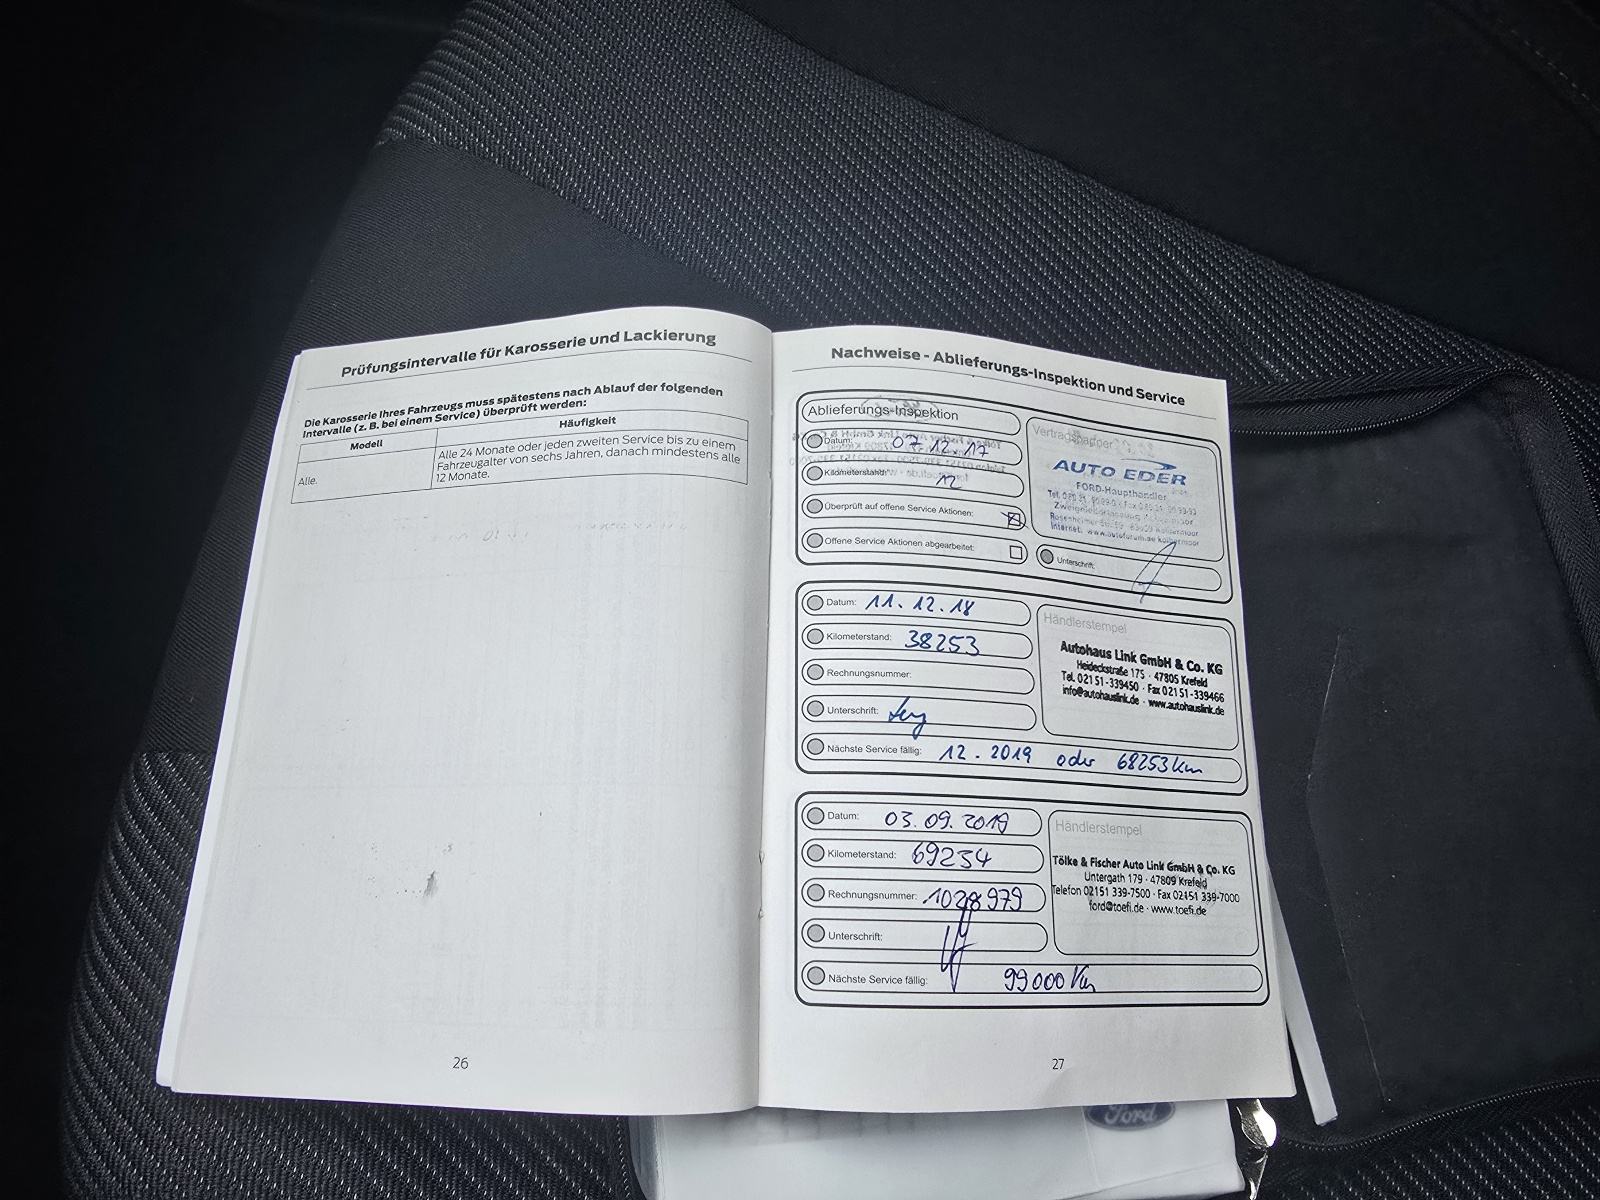 Prüfungsintervalle für Karosserie und Lackierung
Die Karosserie Ihres Fahrzeugs muss spätestens nach Ablauf der folgenden
Intervalle (z. B. bei einem Service) überprüft werden:
Modell
Häufigkeit
Alle.
Alle 24 Monate oder jeden zweiten Service bis zu einem
Fahrzeugalter von sechs Jahren, danach mindestens alle
12 Monate.
26
Nachweise - Ablieferungs-Inspektion und Service
Ablieferungs-Inspektion
Datum: 07.12.17
Kilometerstand: 12
Überprüft auf offene Service Aktionen:
Offene Service Aktionen abgearbeitet:
Vertragspartner
AUTO EDER
FORD-Haupthändler
Unterschrift:
Datum: 11.12.18
Kilometerstand: 38253
Rechnungsnummer:
Unterschrift:
Nächste Service fällig: 12.2019 oder 68253 km
Händlerstempel
Autohaus Link GmbH & Co. KG
Heideckstraße 175 · 47805 Krefeld
Tel. 02151-339450 · Fax 02151-339466
info@autohauslink.de · www.autohauslink.de
Datum: 03.09.2019
Kilometerstand: 69234
Rechnungsnummer: 1028979
Unterschrift:
Nächste Service fällig: 99000 Km
Händlerstempel
Tölke & Fischer Auto Link GmbH & Co. KG
Untergath 179 · 47809 Krefeld
Telefon 02151 339-7500 · Fax 02151 339-7000
ford@toefi.de · www.toefi.de
27
Ford